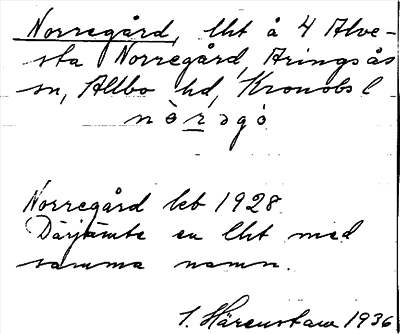 Norregård, lht å 4 Alve-
sta Norregård, Aringsås
sn, Allbo hd, Kronobs l
nòrəgo
Norregård leb 1928
Därjämte en lht med
samma namn.
S. Härenstam 1936